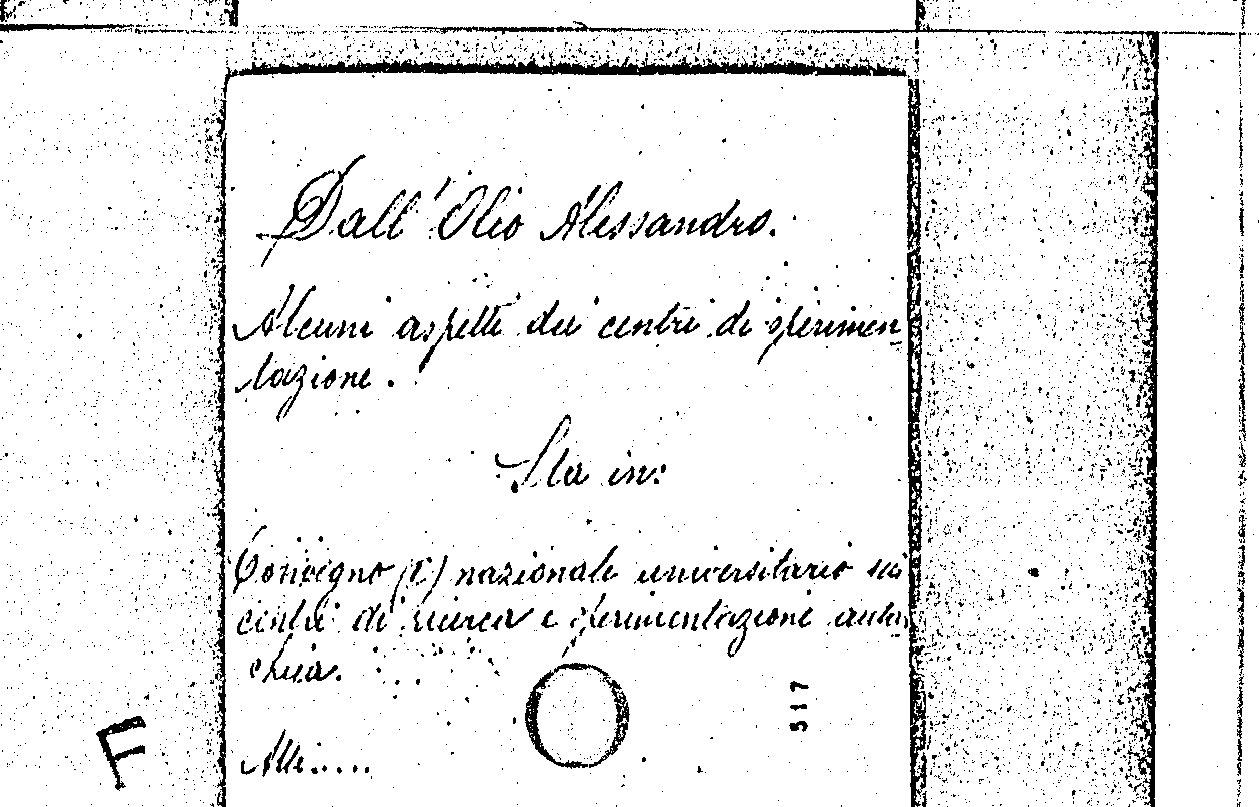 Dall'Olio Alessandro.
Alcuni aspetti dei centri di sperimen-
tazione.
Sta in:
Convegno (I) nazionale universitario sui
centri di ricerca e sperimentazione autar-
chica.
Atti....
517
F